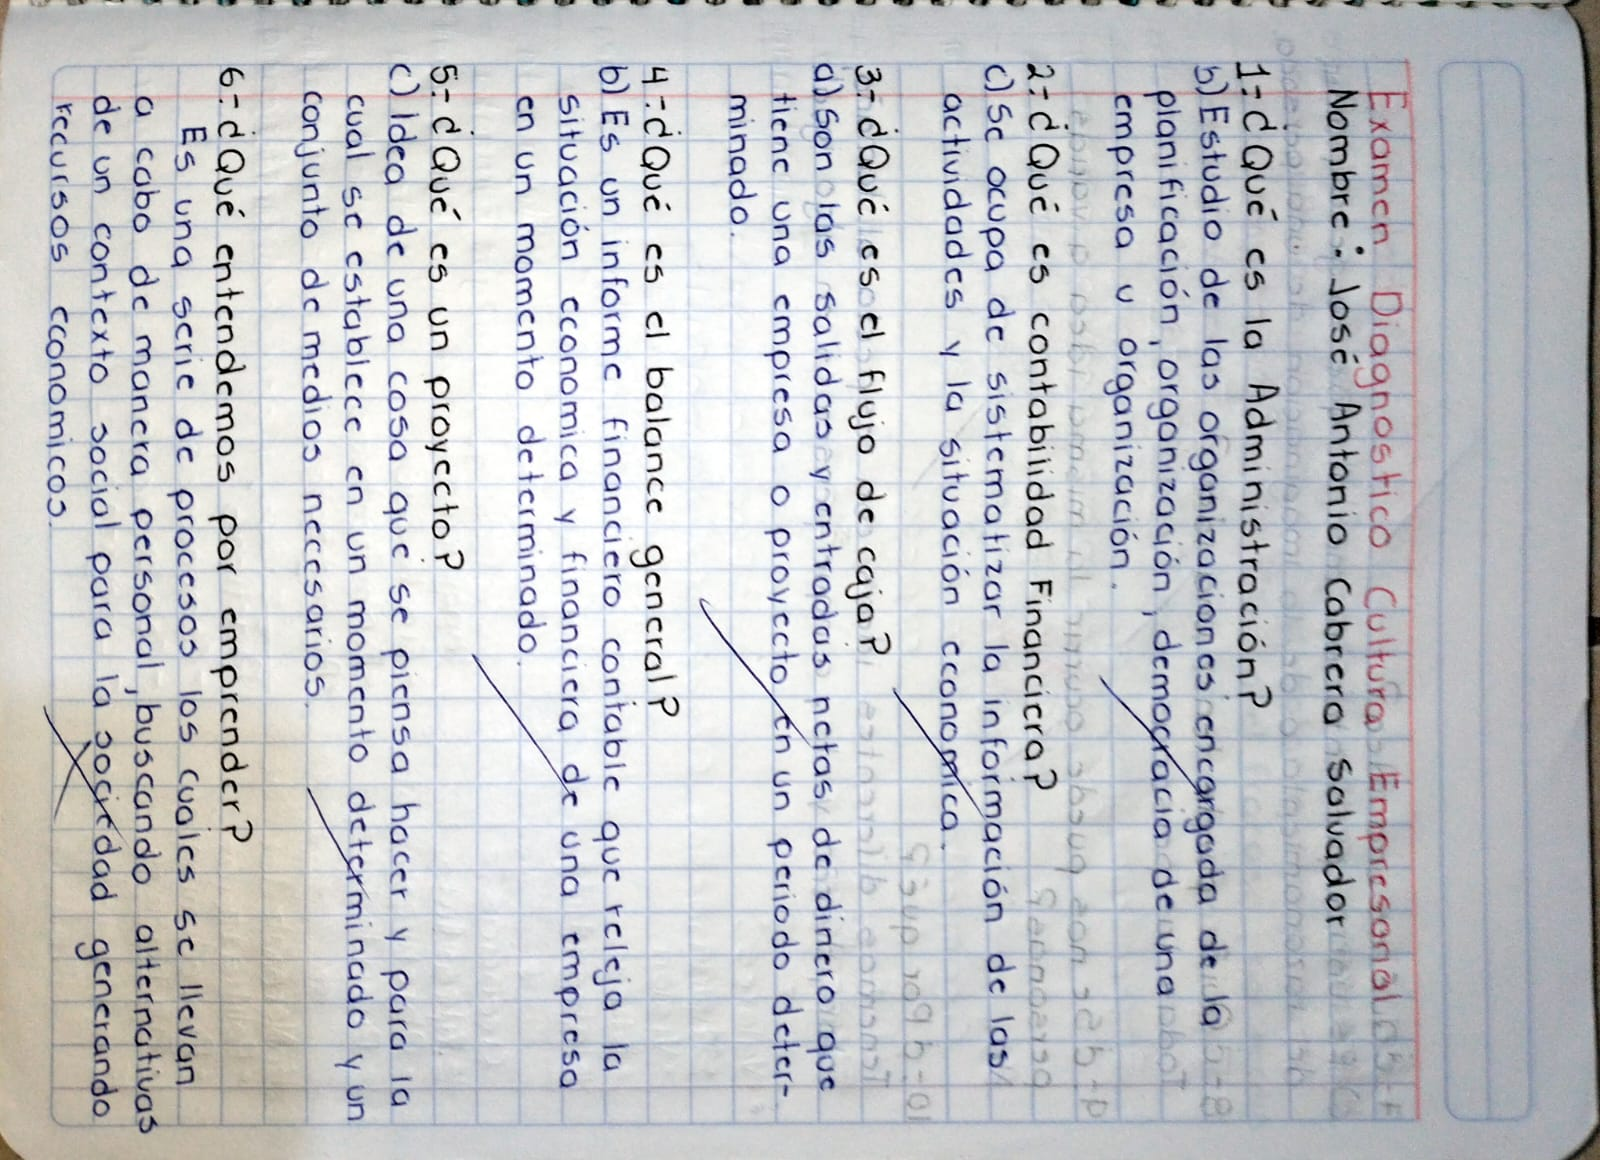 Examen Diagnostico Cultura Empresarial
Nombre: José Antonio Cabrera Salvador
1.- ¿Qué es la Administración?
b) Estudio de las organizaciones encargada de la
planificación, organización, democracia de una
empresa u organización.
2.- ¿Qué es contabilidad Financiera?
c) Se ocupa de sistematizar la información de las
actividades y la situación economica.
3.- ¿Qué es el flujo de caja?
a) Son las salidas y entradas netas de dinero que
tiene una empresa o proyecto en un periodo deter-
minado.
4.- ¿Qué es el balance general?
b) Es un informe financiero contable que releja la
situación economica y financiera de una empresa
en un momento determinado.
5.- ¿Qué es un proyecto?
c) Idea de una cosa que se piensa hacer y para la
cual se establece en un momento determinado y un
conjunto de medios necesarios.
6.- ¿Qué entendemos por emprender?
Es una serie de procesos los cuales se llevan
a cabo de manera personal, buscando alternativas
de un contexto social para la sociedad generando
recursos economicos.